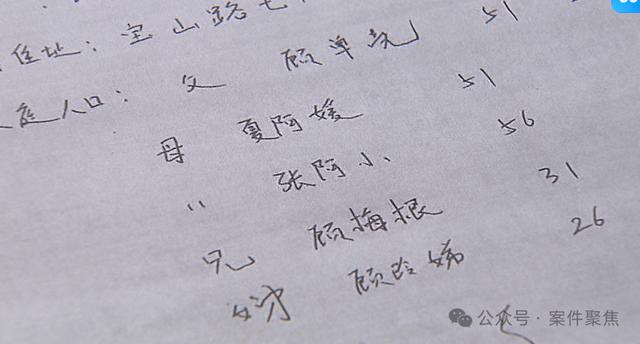 住址：宝山路七
家庭人口：父 顾单先 51
母 夏阿媛 51
〃 张阿小 56
兄 顾梅根 31
顾玲娣 26
公众号·案件聚焦